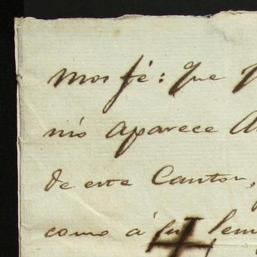 mos fé: Que
nió aparece
de este Canton,
como á su